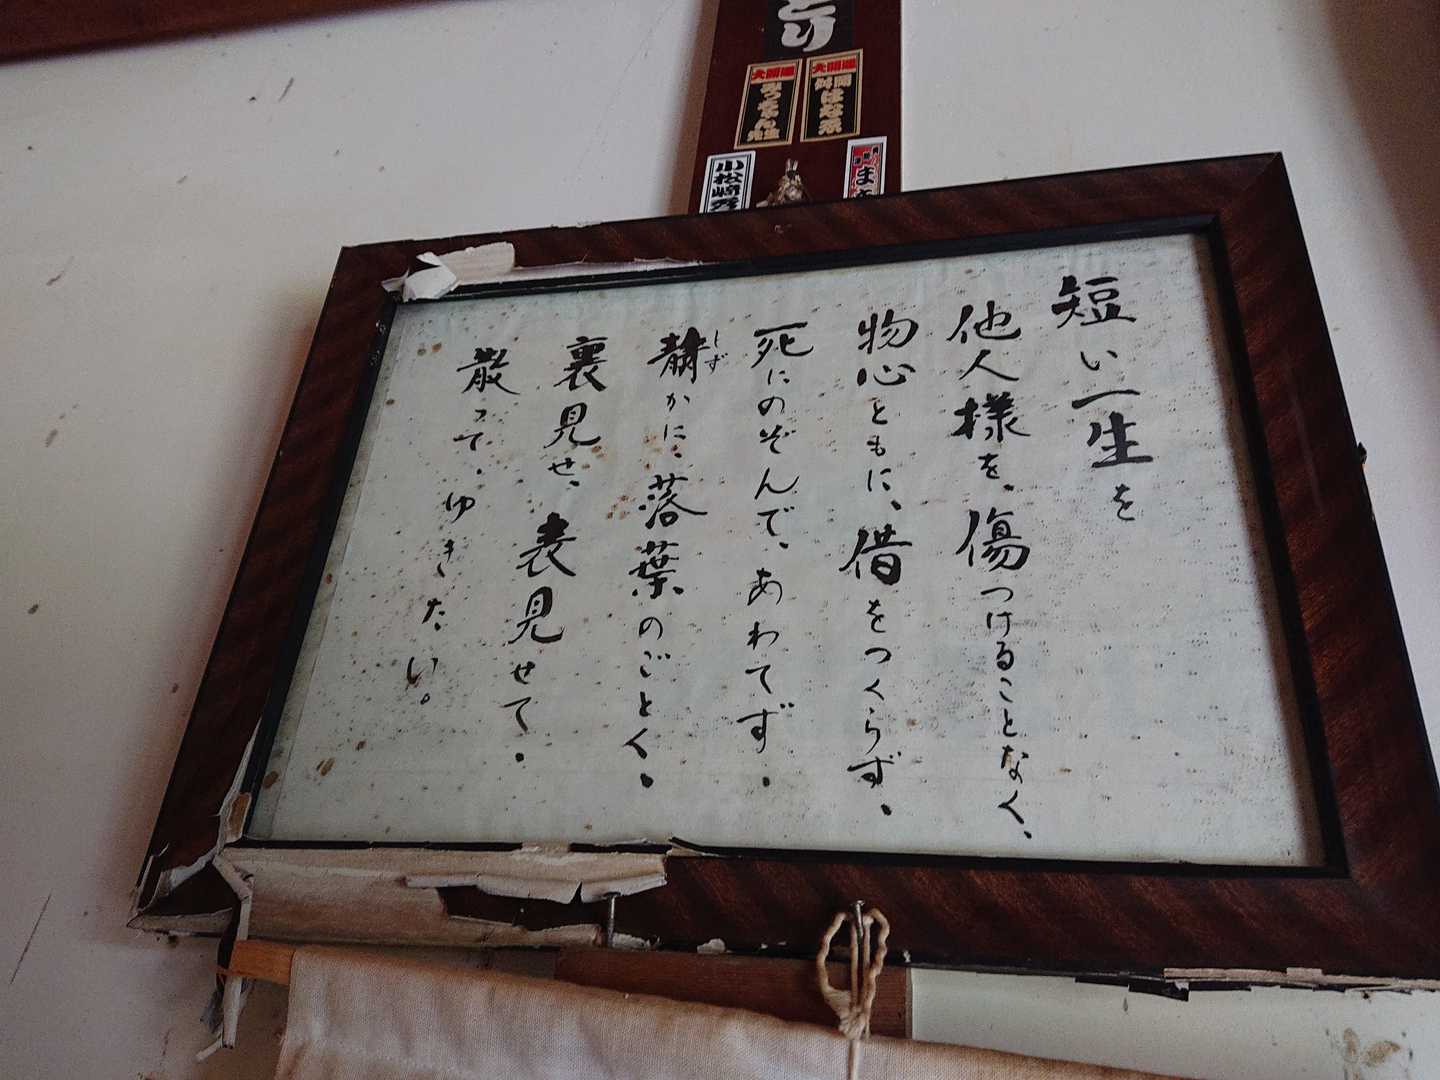 とり
大開運
併開はなゑ
大開運
みっちゃん先生
小松崎
短い一生を
他人様を、傷つけることなく、
物心ともに、借をつくらず、
死にのぞんで、あわてず、
静かに、落葉のごとく、
しず
裏見せ、表見せて、
散って、ゆきたい。